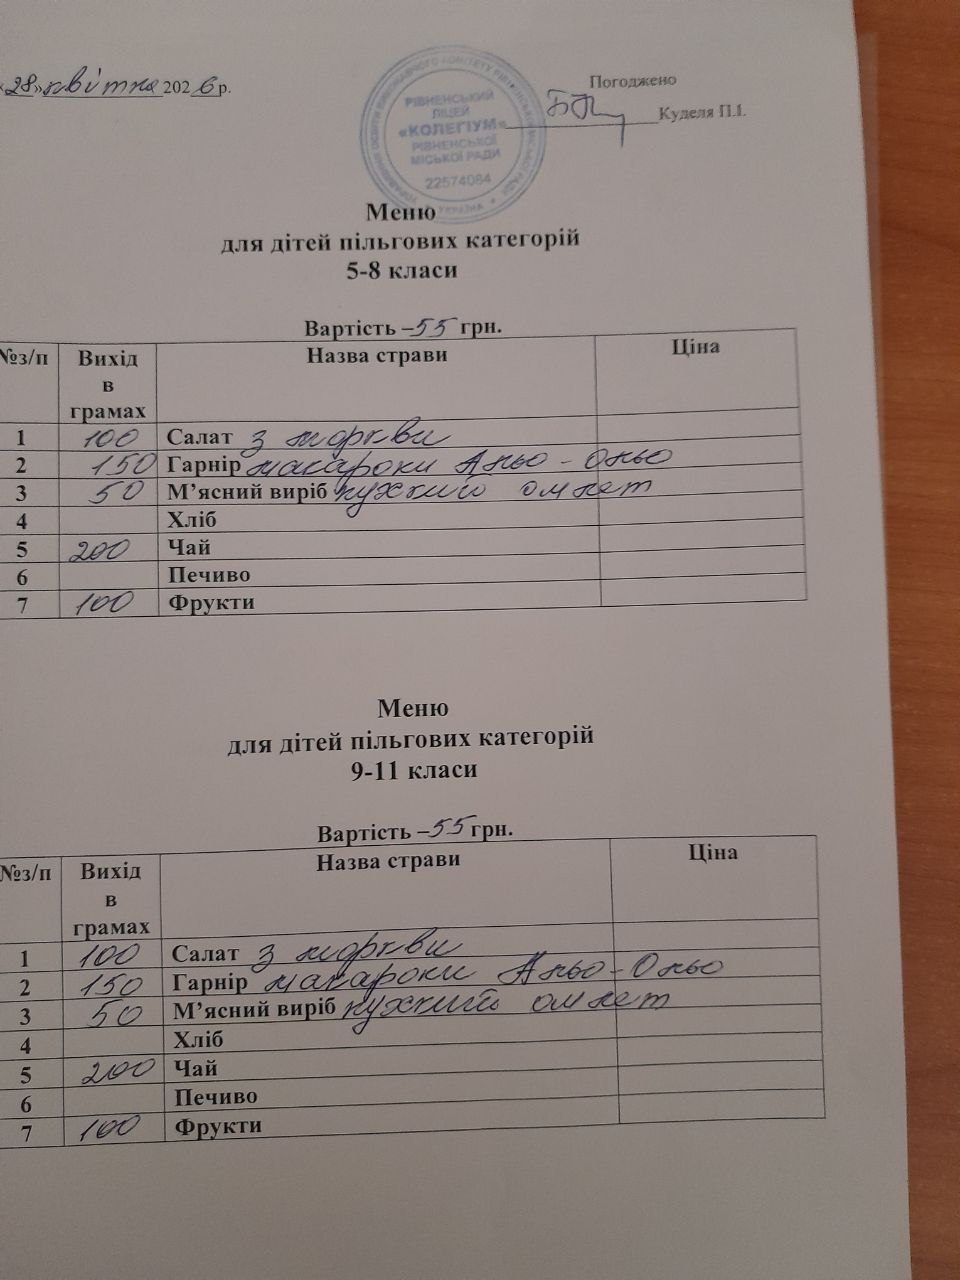 «28» квітна 2026 р.
Погоджено
Куделя П.І.
РІВНЕНСЬКИЙ
ЛІЦЕЙ
«КОЛЕГІУМ»
РІВНЕНСЬКОЇ
МІСЬКОЇ РАДИ
22574084
УКРАЇНА
Меню
для дітей пільгових категорій
5-8 класи
Вартість –55 грн.
№з/п Вихід в грамах Назва страви Ціна
1 100 Салат з моркви
2 150 Гарнір макарони Аньо-Оньо
3 50 М’ясний виріб пухкий омлет
4 Хліб
5 200 Чай
6 Печиво
7 100 Фрукти
Меню
для дітей пільгових категорій
9-11 класи
Вартість –55 грн.
№з/п Вихід в грамах Назва страви Ціна
1 100 Салат з моркви
2 150 Гарнір макарони Аньо-Оньо
3 50 М’ясний виріб пухкий омлет
4 Хліб
5 200 Чай
6 Печиво
7 100 Фрукти